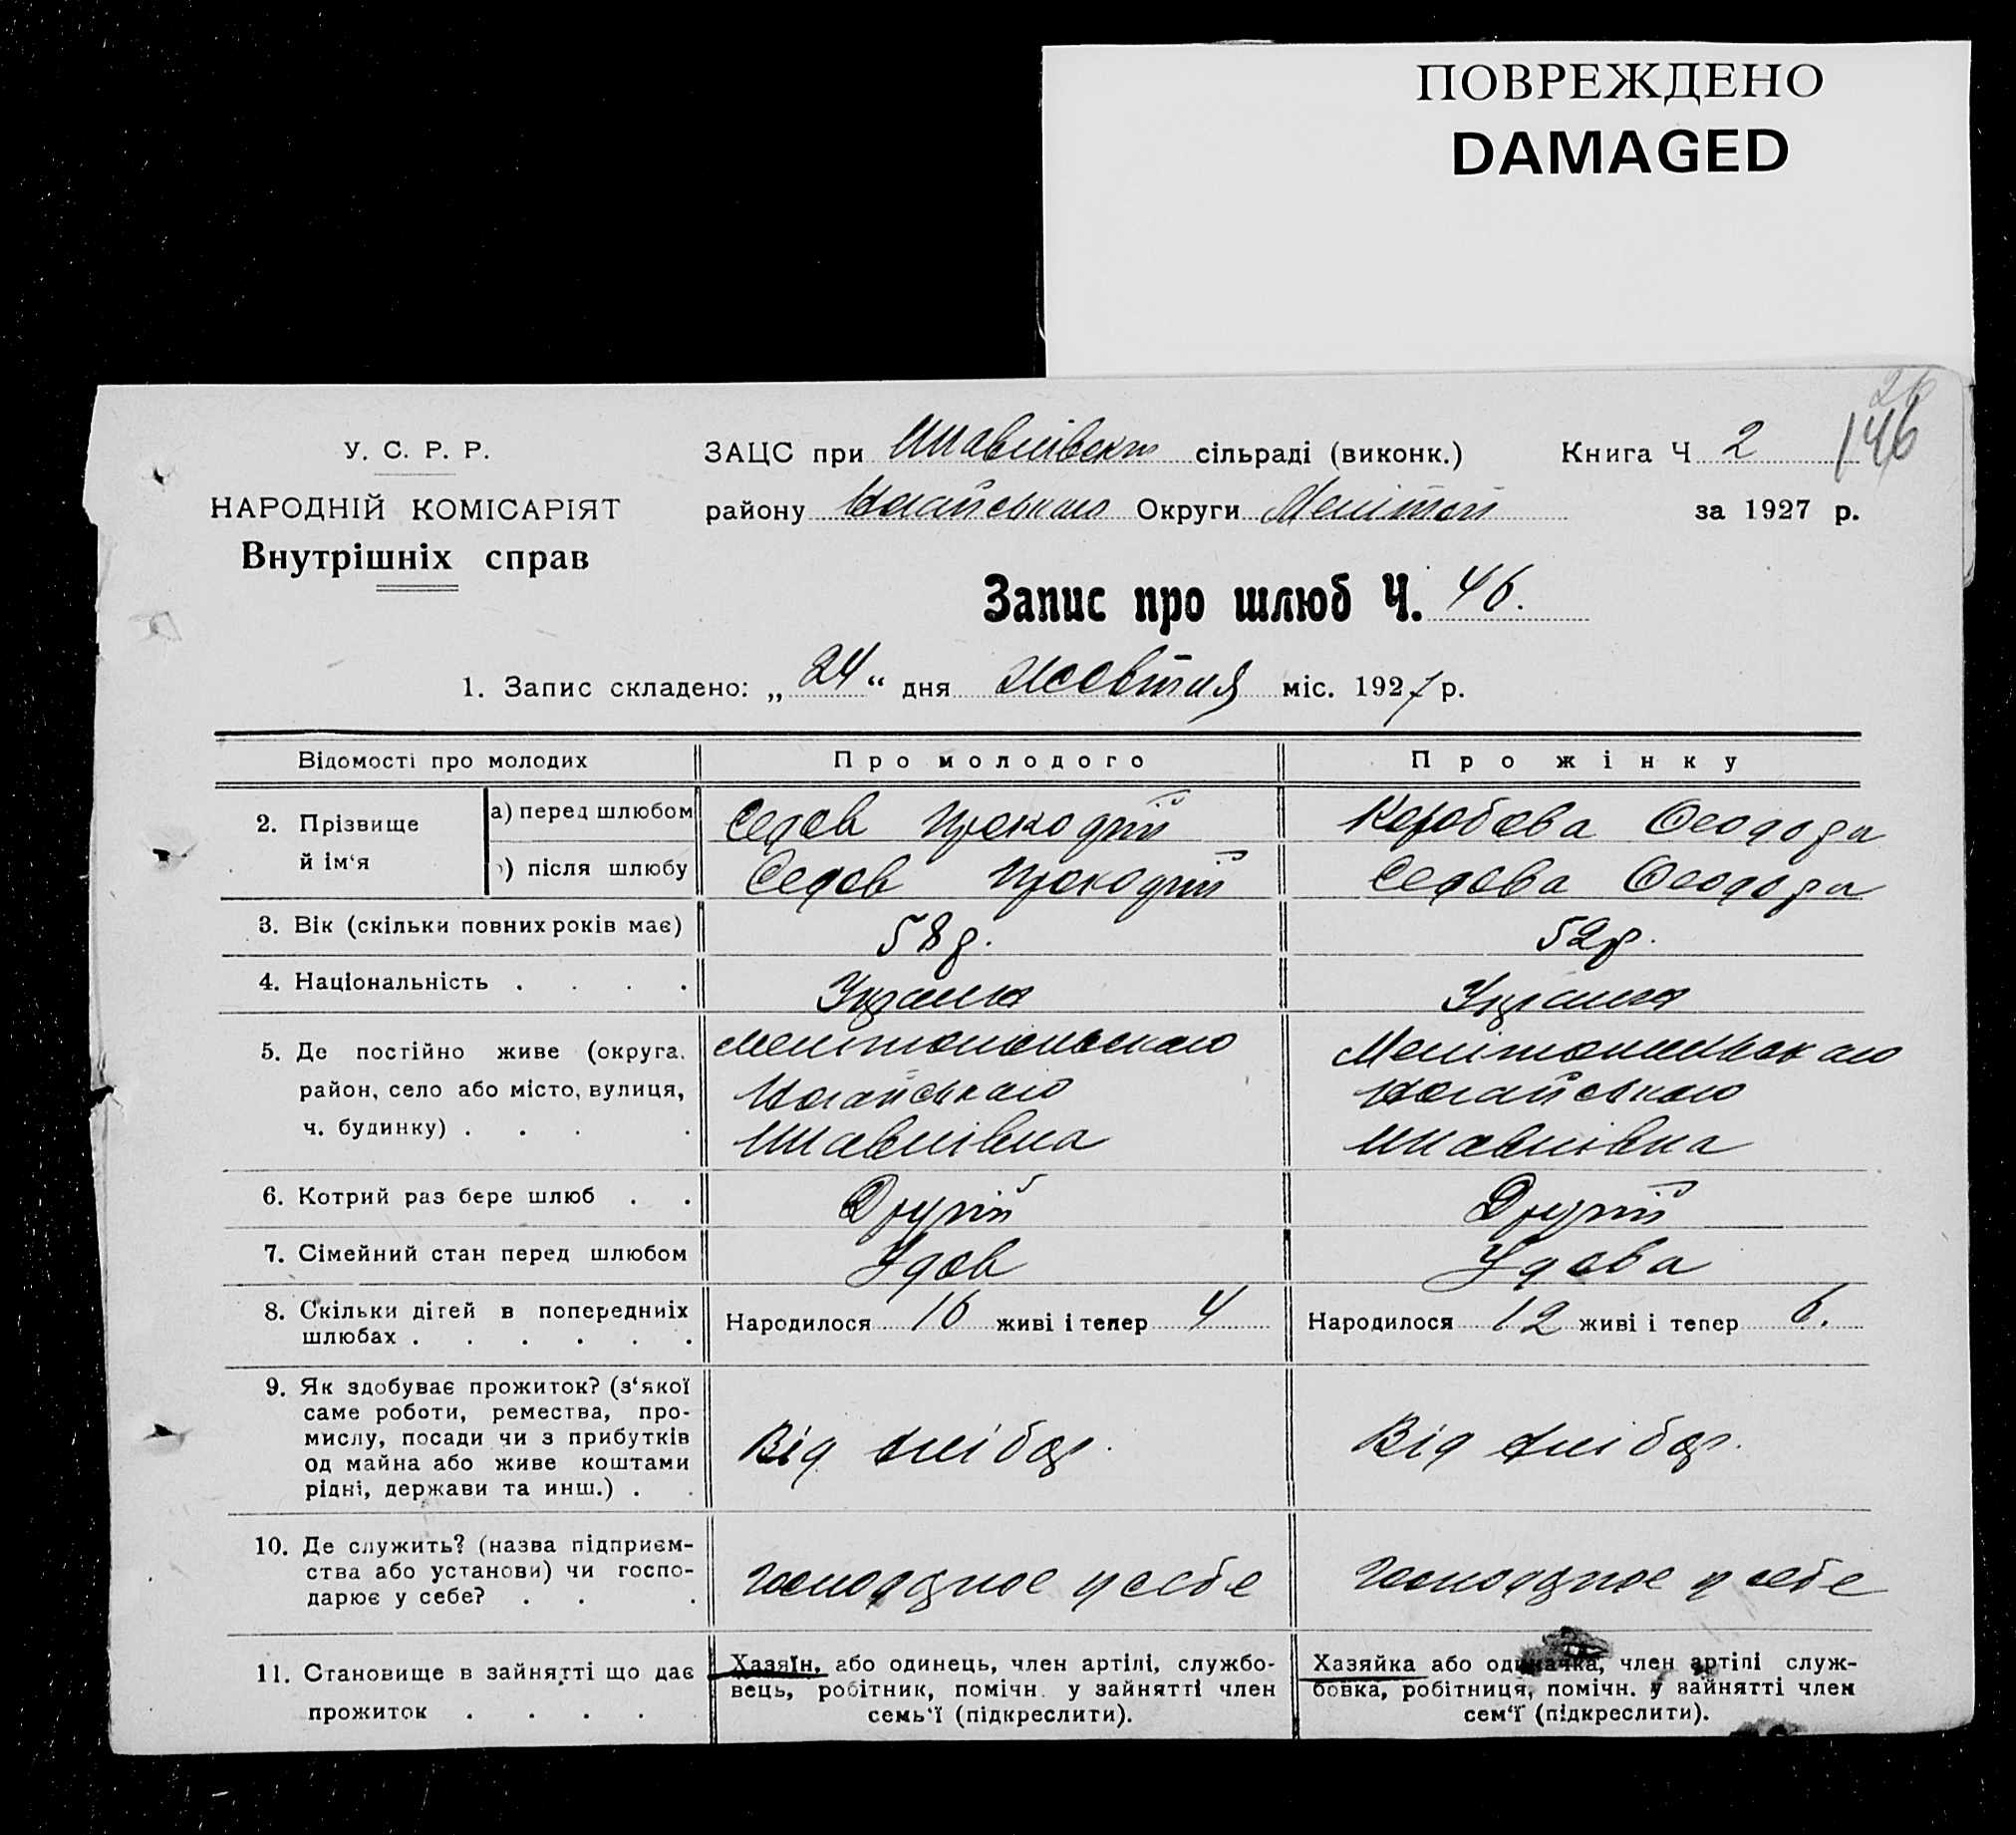 ПОВРЕЖДЕНО
DAMAGED
26
146
У. С. Р. Р.
НАРОДНІЙ КОМІСАРІЯТ
Внутрішніх справ
ЗАЦС при сільраді (виконк.) Книга Ч 2
району Ногайського Округи Мелітоп за 1927 р.
Запис про шлюб Ч. 46.
1. Запис складено: „24“ дня Жовтня міс. 1927 р.
Відомості про молодих Про молодого Про жінку
2. Прізвище й ім‘я
а) перед шлюбом Седов Коробова
) після шлюбу Седов Седова
3. Вік (скільки повних років має) 58 р. 52 р.
4. Національність . . . . Украін Украін
5. Де постійно живе (округа, Мелітопольского Мелітопольского
район, село або місто, вулиця, Ногайського Ногайського
ч. будинку) . . . .
6. Котрий раз бере шлюб . . Другій Другій
7. Сімейний стан перед шлюбом Удов Удова
8. Скільки дітей в попередниіх Народилося 16 живі і тепер 4 Народилося 12 живі і тепер 6.
шлюбах . . . . . .
9. Як здобуває прожиток? (з‘якої
саме роботи, ремества, про-
мислу, посади чи з прибутків Від хлібор. Від хлібор.
од майна або живе коштами
рідні, держави та инш.) . .
10. Де служить? (назва підприєм-
ства або установи) чи госпо- Господарює у себе Господарює у себе
дарює у себе? . . .
11. Становище в зайнятті що дає
прожиток . . . .
Хазяїн, або одинець, член артілі, службо-
вець, робітник, помічн. у зайнятті член
семь‘ї (підкреслити).
Хазяйка або одиначка, член артілі служ-
бовка, робітниця, помічн. у зайнятті член
сем‘ї (підкреслити).